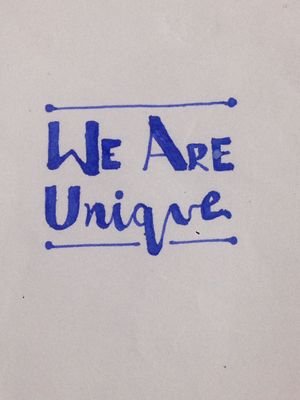 We Are
Unique